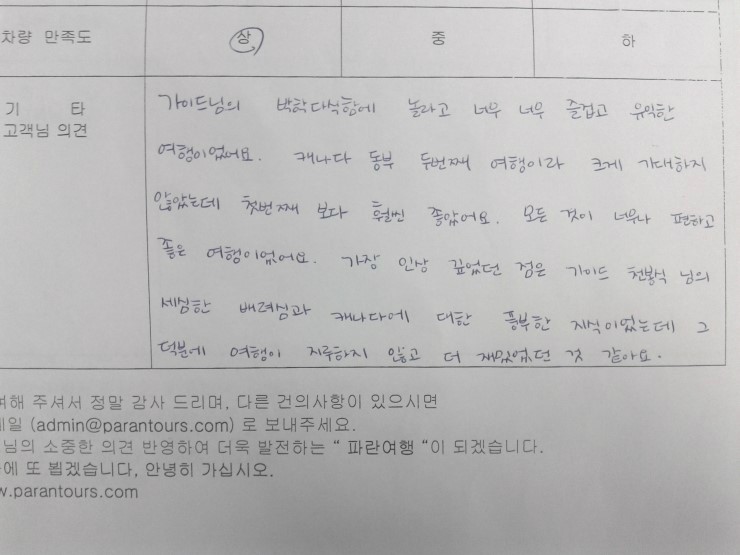 차량 만족도 상 중 하
기 타
고객님 의견
가이드님의 박학다식함에 놀라고 너무 너무 즐겁고 유익한
여행이었어요. 캐나다 동부 두번째 여행이라 크게 기대하지
않았는데 첫번째 보다 훨씬 좋았어요. 모든 것이 너무나 편하고
좋은 여행이었어요. 가장 인상 깊었던 점은 가이드 천봉식 님의
세심한 배려심과 캐나다에 대한 풍부한 지식이었는데 그
덕분에 여행이 지루하지 않고 더 재밌었던 것 같아요.
여해 주셔서 정말 감사 드리며, 다른 건의사항이 있으시면
(admin@parantours.com) 로 보내주세요.
님의 소중한 의견 반영하여 더욱 발전하는 “ 파란여행 “이 되겠습니다.
에 또 뵙겠습니다, 안녕히 가십시오.
w.parantours.com